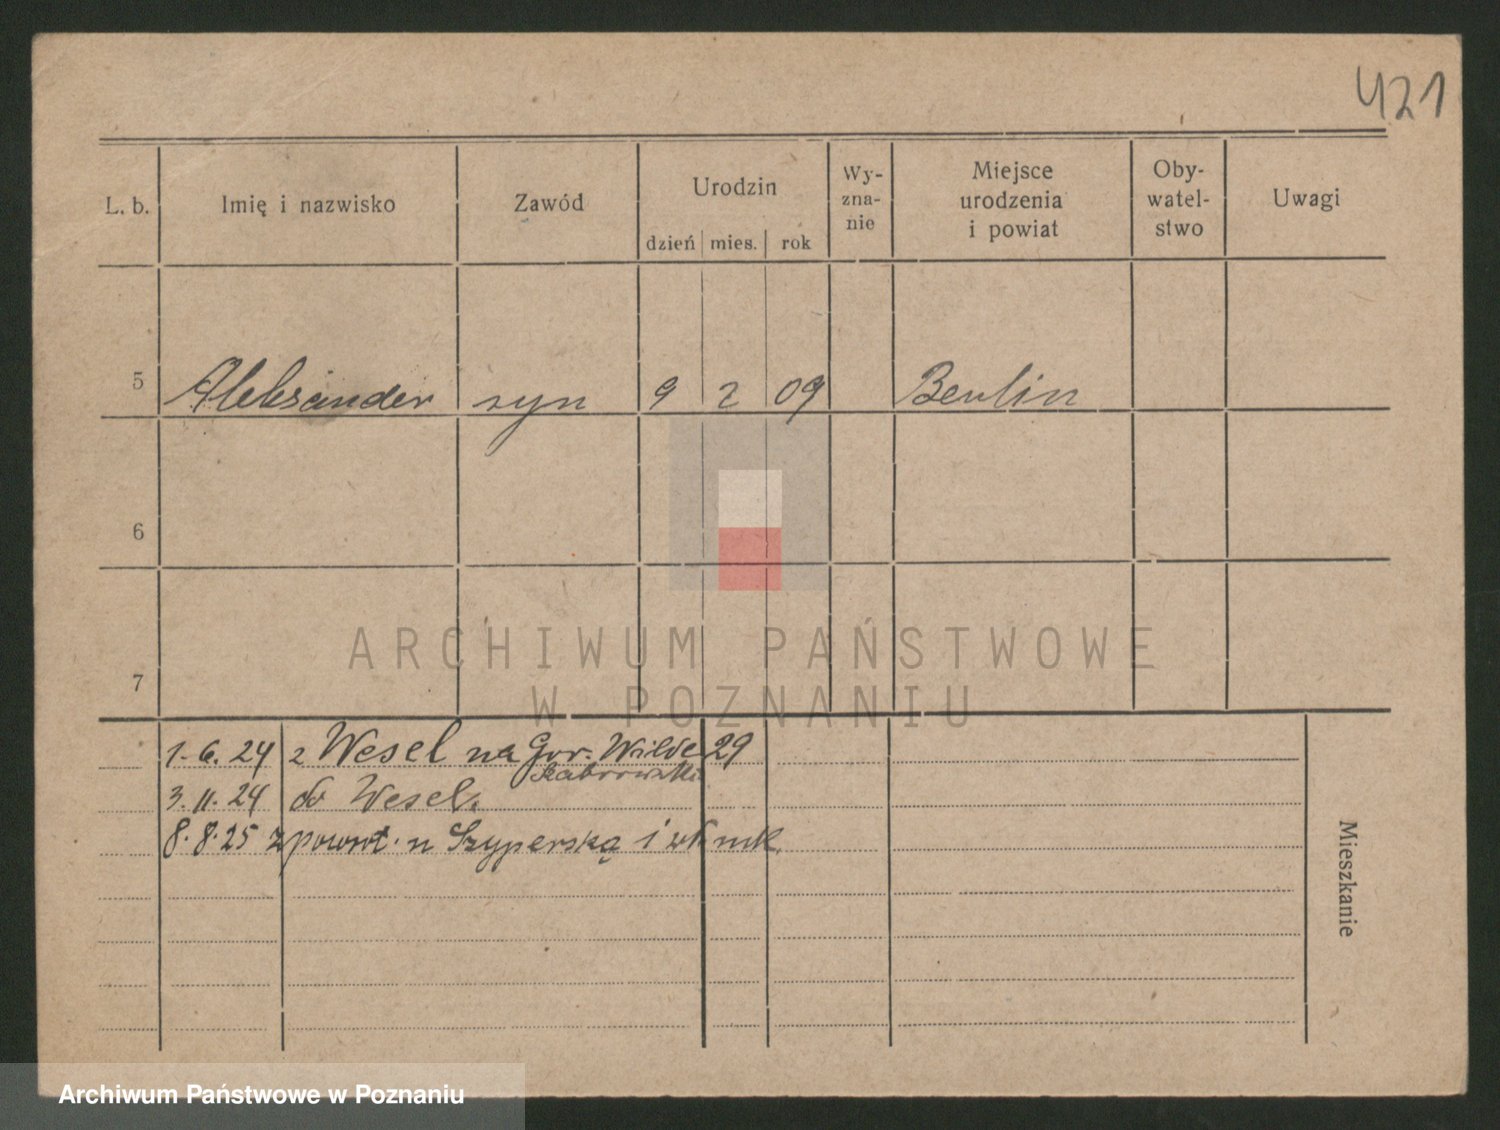 421
L. b. Imię i nazwisko Zawód Urodzin Wy-zna-nie Miejsce urodzenia i powiat Oby-watel-stwo Uwagi
dzień mies. rok
5 Aleksander syn 9 2 09 Berlin
6
7
ARCHIWUM PAŃSTWOWE
W POZNANIU
1. 6. 24 z Wesel na Gor. Wilde 29
3. 11. 24 do Wesel.
8. 8. 25 z powrt. n Szyperską i
Mieszkanie
Archiwum Państwowe w Poznaniu